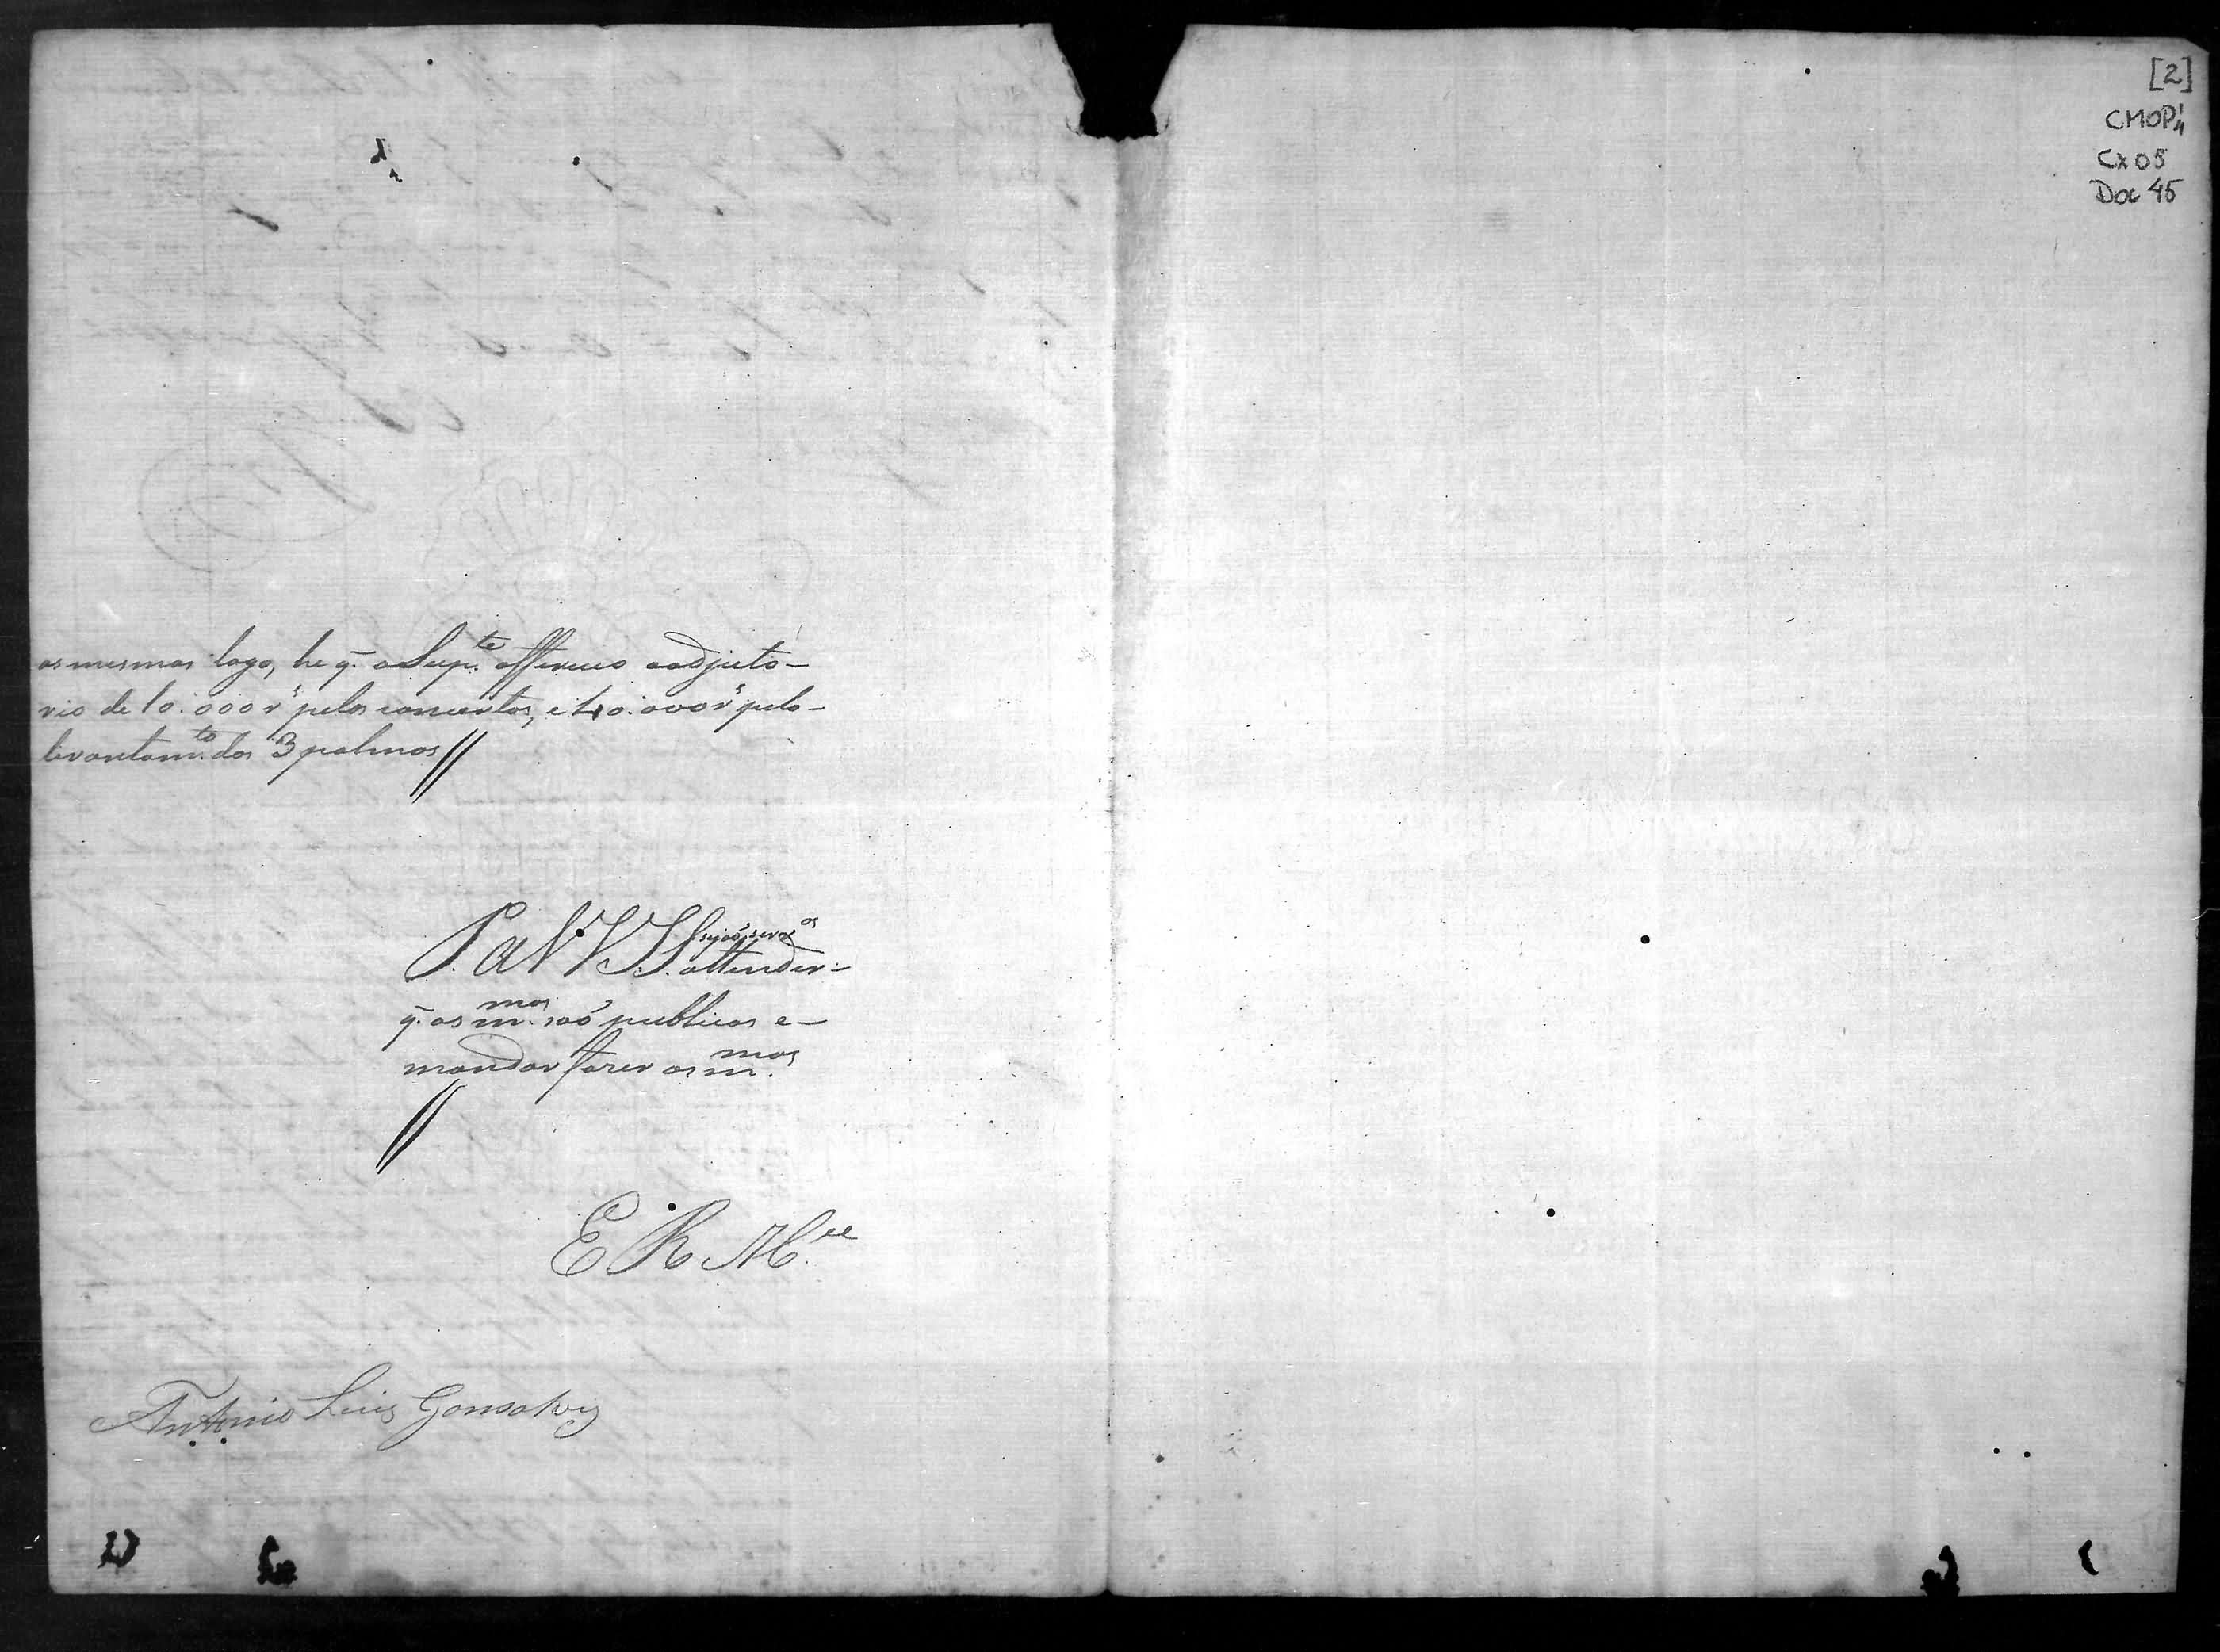 [2]
CMOP
Cx 05
Doc 45
as mesmas logo, he q̃. o Sup.te offereceo o adjuto-
rio de 10.000 rs pelos concertos, e 40.000 rs pelo-
levantam.to dos 3 palmos //
P. a V.V. S.S. attender-
q̃. as m.mas saõ publicas e-
mandar fazer as m.mas
//
E. R. M.ce
Antonio Luis Gonsalves